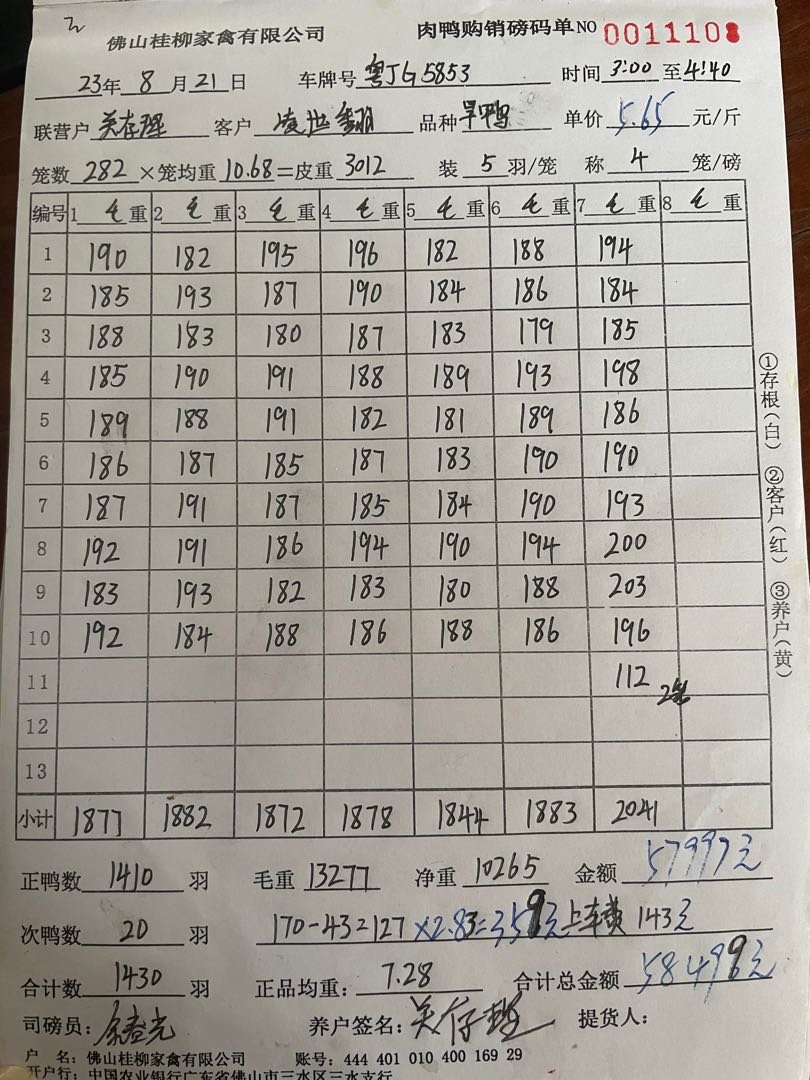 佛山桂柳家禽有限公司 肉鸭购销磅码单 NO 0011108
23年 8 月 21 日 车牌号 粤JG5853 时间 3:00 至 4:40
联营户 关存理 客户 品种 旱鸭 单价 5.65 元/斤
笼数 282 ×笼均重 10.68 =皮重 3012 装 5 羽/笼 称 4 笼/磅
编号 1 毛 重 2 毛 重 3 毛 重 4 毛 重 5 毛 重 6 毛 重 7 毛 重 8 毛 重
1 190 182 195 196 182 188 194
2 185 193 187 190 184 186 184
3 188 183 180 187 183 179 185
4 185 190 191 188 189 193 198
5 189 188 191 182 181 189 186
6 186 187 185 187 183 190 190
7 187 191 187 185 184 190 193
8 192 191 186 194 190 194 200
9 183 193 182 183 180 188 203
10 192 184 188 186 188 186 196
11 112 2笼
12
13
小计 1877 1882 1872 1878 1844 1883 2041
正鸭数 1410 羽 毛重 13277 净重 10265 金额 57997元
次鸭数 20 羽 170-43=127 ×2.83=359元 上车费 143元
合计数 1430 羽 正品均重: 7.28 合计总金额 58499元
司磅员: 养户签名: 关存理 提货人:
户 名: 佛山桂柳家禽有限公司 账号: 444 401 010 400 169 29
开户行: 中国农业银行广东省佛山市三水区三水支行
①存根(白) ②客户(红) ③养户(黄)